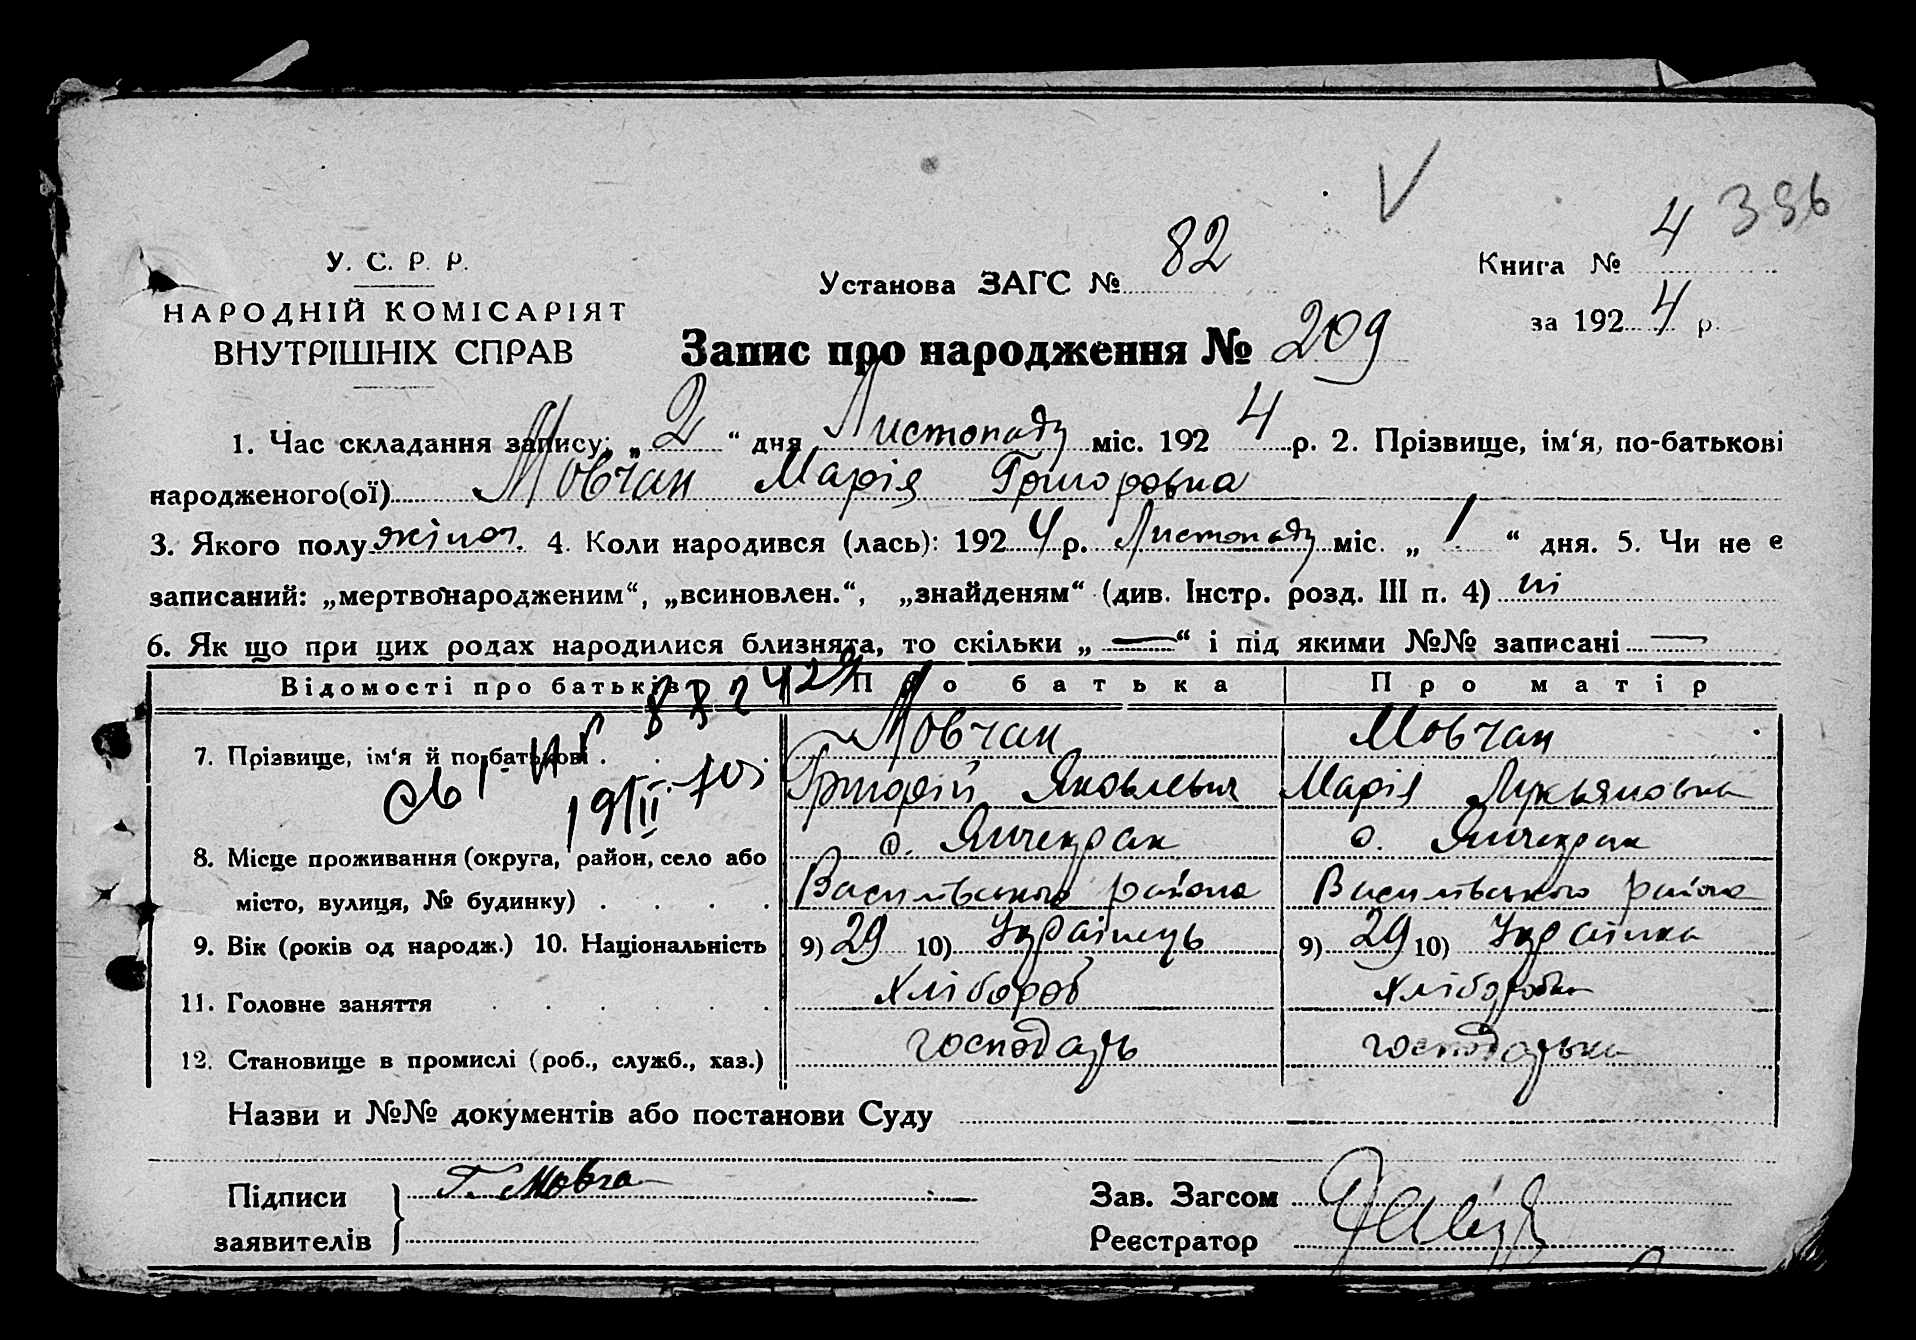 V
4 396
У. С. Р. Р.
НАРОДНІЙ КОМІСАРІЯТ
ВНУТРІШНІХ СПРАВ
Установа ЗАГС № 82
Книга №
за 1924 р.
Запис про народження № 209
1. Час складання запису: „ 2 “ дня Листопаду міс. 192 4 р. 2. Прізвище, ім‘я, по-батькові
народженого(ої) Мовчан Марія Григоровна
3. Якого полу жіноч. 4. Коли народився (лась): 192 4 р. Листопаду міс. „ 1 “ дня. 5. Чи не є
записаний: „мертвонародженим“, „всиновлен.“, „знайденям“ (див. Інстр. розд. III п. 4) ні
6. Як що при цих родах народилися близнята, то скільки „ — “ і під якими №№ записані —
Відомості про батьків Про батька Про матір
7. Прізвище, ім‘я й по-батькові . . . . Мовчан Мовчан
Григорій Яковлевич Марія Лукьяновна
8. Місце проживання (округа, район, село або с. Янчекрак с. Янчекрак
місто, вулиця, № будинку) . . . . Василівського району Василівського району
9. Вік (років од народж.) 10. Національність 9) 29 10) Українець 9) 29 10) Українка
11. Головне заняття . . . . . . хлібороб хліборобка
12. Становище в промислі (роб., служб., хаз.) господарь господарька
Назви и №№ документів або постанови Суду
Підписи
заявителів
Г. Мовча
Зав. Загсом
Реєстратор